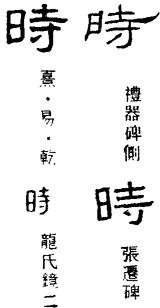 時
禮器碑側
時
張遷碑
時
熹·易·乾
時
龍氏鏡二